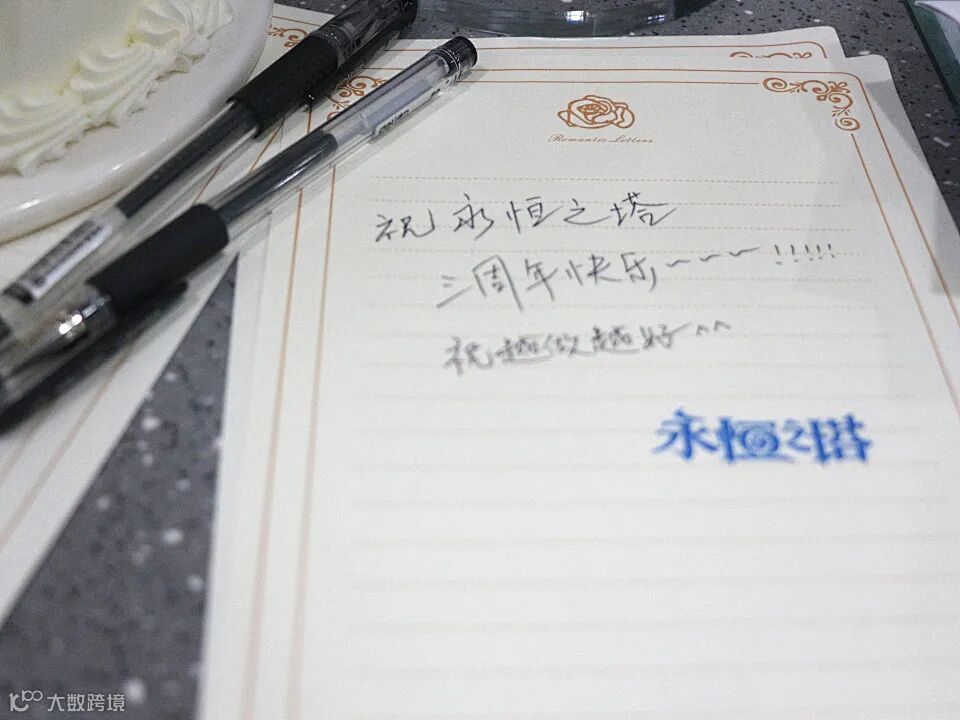 Romantic Letters
祝永恒之塔
三周年快乐~~~!!!!!
祝越做越好^^
永恒之塔
大数跨境